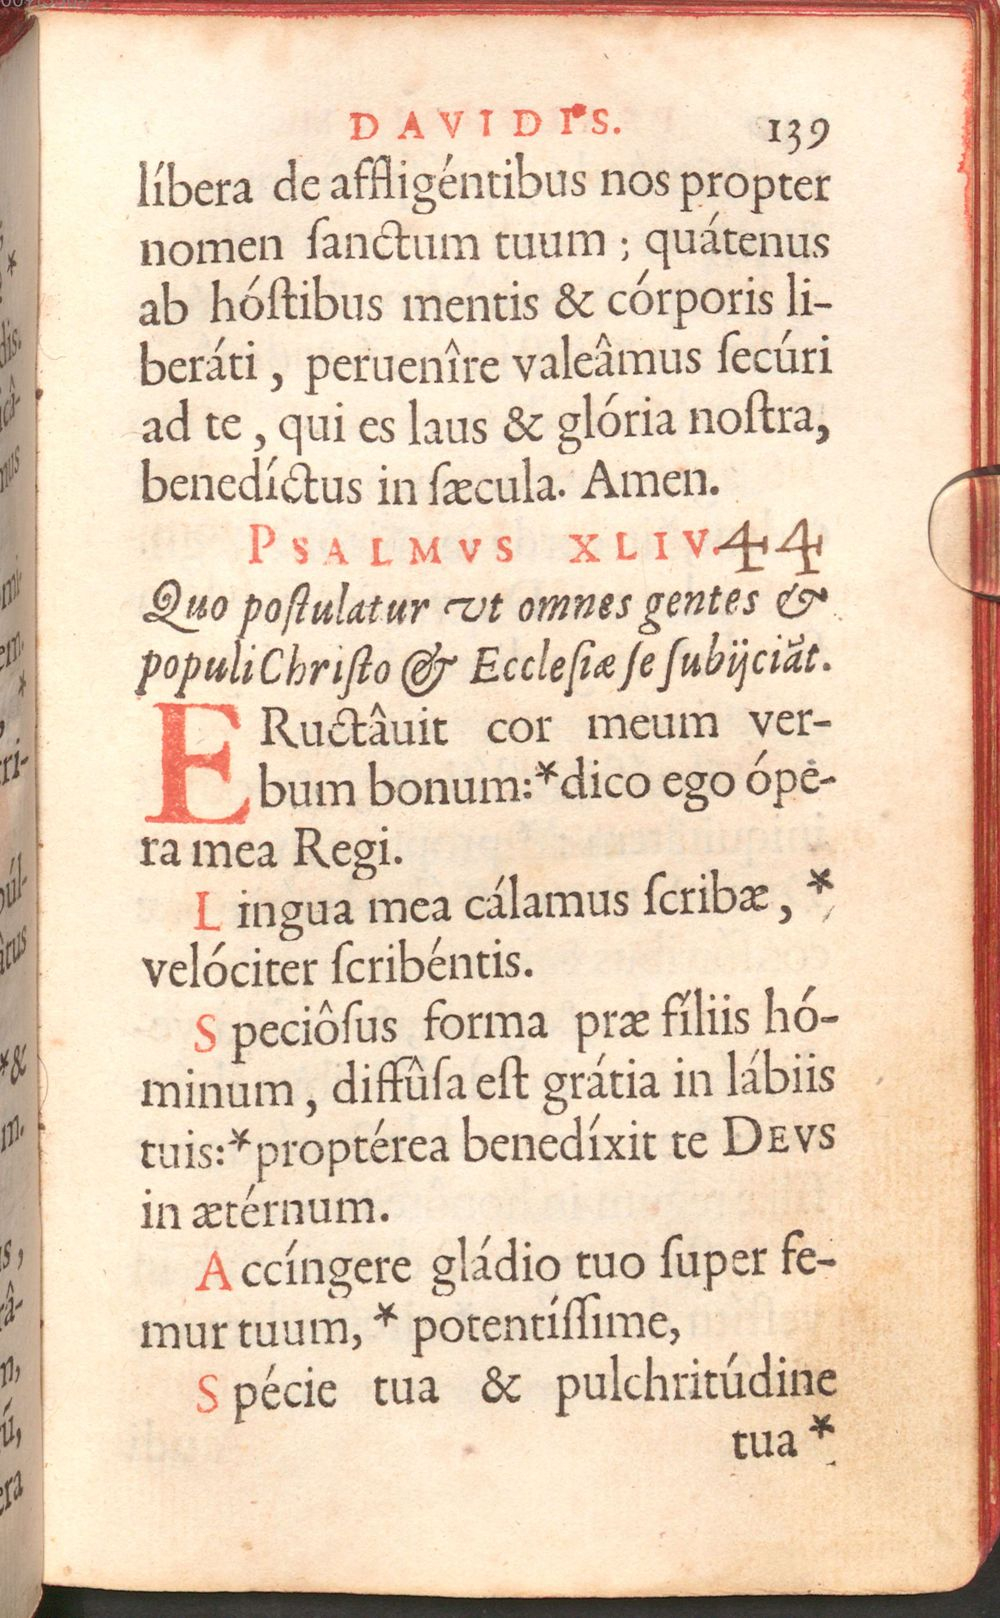 DAVIDIS. 139
líbera de affligéntibus nos propter
nomen ſanctum tuum ; quátenus
ab hóſtibus mentis & córporis li-
beráti , peruenîre valeâmus ſecúri
ad te , qui es laus & glória noſtra,
benedíctus in ſæcula. Amen.
PSALMVS XLIV. 44
Quo poſtulatur vt omnes gentes &
populi Chriſto & Eccleſiæ ſe ſubijciāt.
ERuctâuit cor meum ver-
bum bonum:*dico ego ópe-
ra mea Regi.
Lingua mea cálamus ſcribæ, *
velóciter ſcribéntis.
Speciôſus forma præ fíliis hó-
minum , diffûſa eſt grátia in lábiis
tuis:*proptérea benedíxit te DEVS
in ætérnum.
Accíngere gládio tuo ſuper fe-
mur tuum, * potentíſſime,
Spécie tua & pulchritúdine
tua *